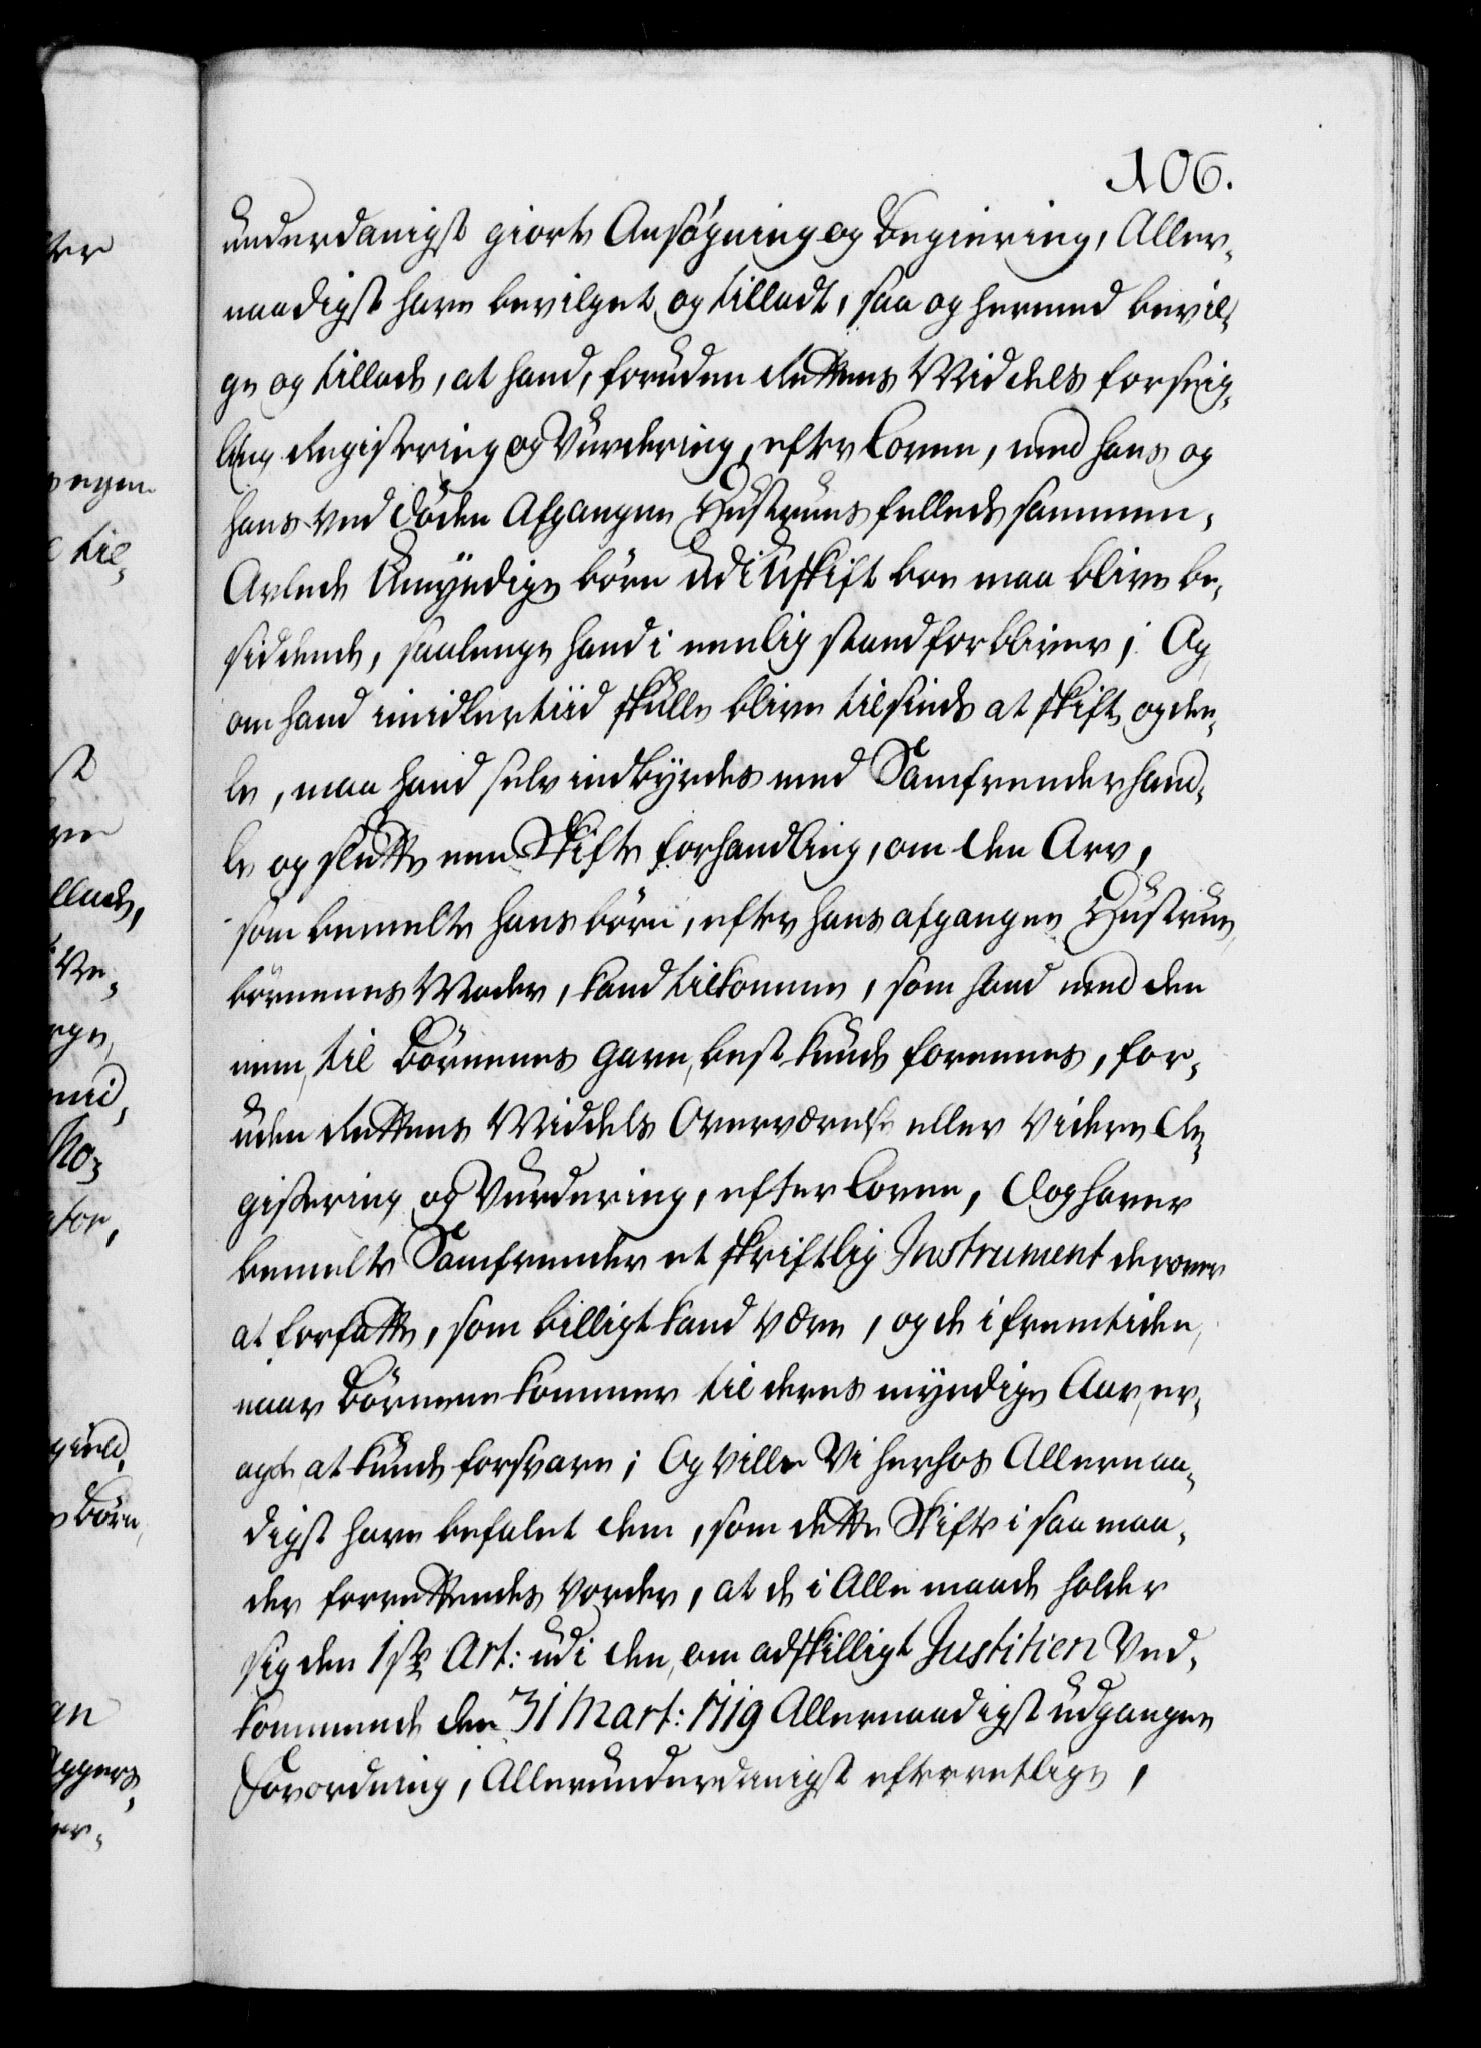 106.
underdanigst giorte Ansøgning og Begiering, Aller-
naadigst have bevilget og tilladt, saa og hermed bevil-
ge og tillade, at hand, foruden Rettens Middels forseig-
ling Registering og Vurdering, efter Loven, med hans og
hans ved døden Afgangne Hustrues fælleds sammen-
Avlede Umyndige børn udi Uskift boe maa blive be-
siddende, saalenge hand i eenlig stand forbliver; Og
om hand imidlertiid skulle blive tilsinds at skifte og dee-
le, maa hand selv indbyrdes med Samfrender hand-
le og slutte een Skifte forhandling, om den Arv,
som bemelte hans børn, efter hans afgangne Hustrue,
børnenes Moder, kand tilkomme, som hand med den-
nem, til Børnenes gavn, best kunde foreenes, for-
uden Rettens Middels Overværelse eller videre Re-
gistering og Vurdering, efter Loven, Dog haver
bemelte Samfrender et skriftlig Instrument derover
at forfatte, som billigt kand være, og de i fremtiden,
naar Børnene kommer til deres myndige Aar, er-
agte at kunde forsvare; Og ville Vi herhos Allernaa-
digst have befalet dem, som dette Skifte i saa maa-
der forrettendes vorder, at de i Alle maade holder
sig den 1ste Art: udi den, om adskilligt Justitien Ved-
kommende den 31 Mart: 1719 Allernaadigst udgangne
Forordning, Allerunderdanigst efterretlige,